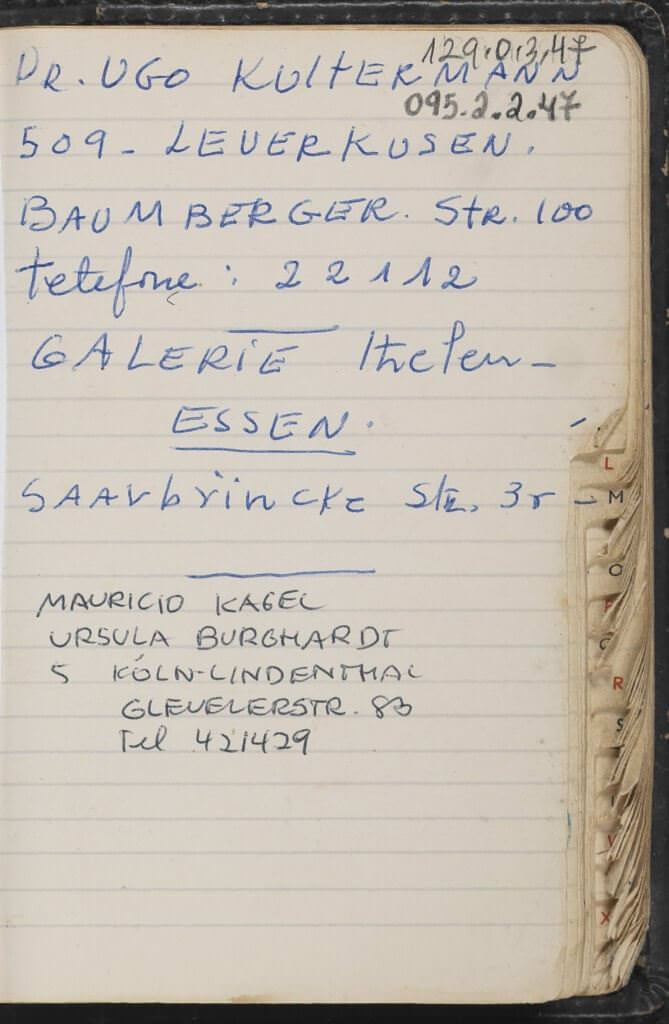 129.0.3.47
DR. UGO KULTERMANN
095.2.2.47
509 - LEUERKUSEN.
BAUMBERGER. Str. 100
Telefone: 22112
GALERIE Thelen -
ESSEN.
SAArbrincke Str. 3r -
MAURICIO KAGEL
URSULA BURGHARDT
5 KÖLN-LINDENTHAL
GLEUELERSTR. 83
Tel 421429
L
M
O
P
Q
R
S
T
V
X